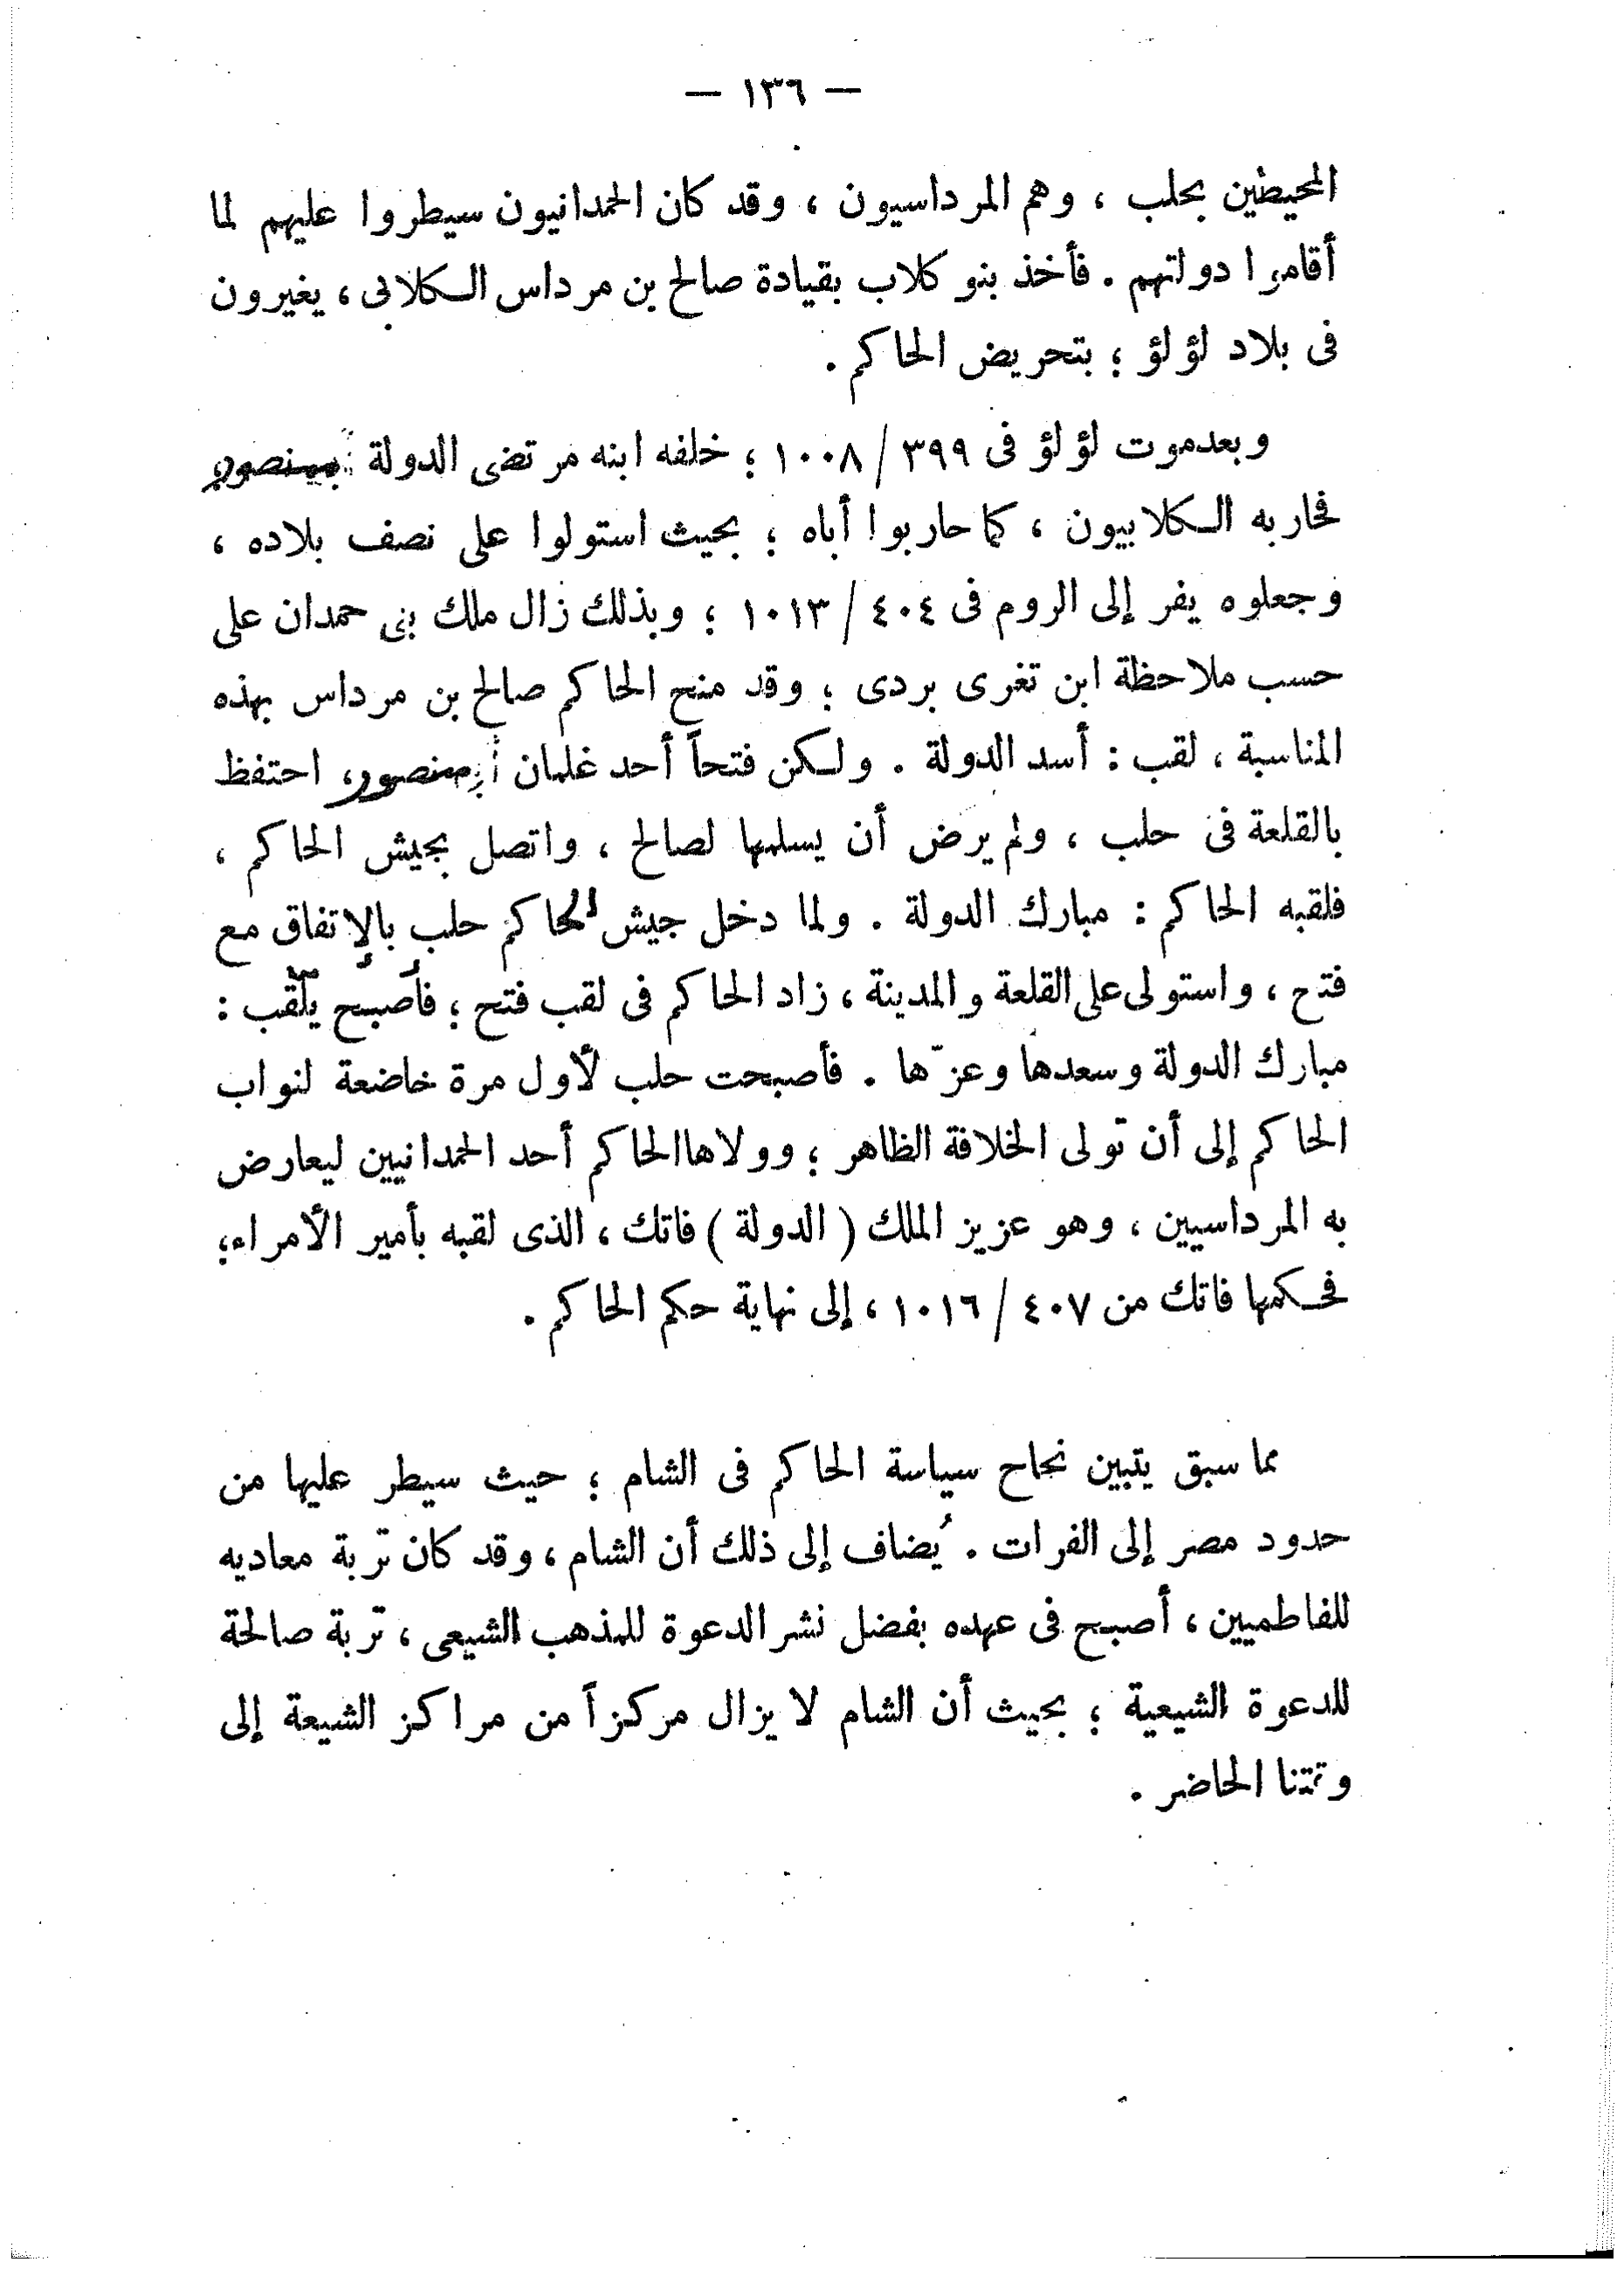 — ١٣٦ —
المحيطين بحلب ، وهم المرداسيون ، وقد كان الحمدانيون سيطروا عليهم لما
أقاموا دولتهم . فأخذ بنو كلاب بقيادة صالح بن مرداس الكلابى ، يغيرون
فى بلاد لؤلؤ ؛ بتحريض الحاكم .
وبعدموت لؤلؤ فى ٣٩٩ / ١٠٠٨ ؛ خلفه ابنه مرتضى الدولة منصور
فحاربه الكلابيون ، كما حاربوا أباه ؛ بحيث استولوا على نصف بلاده ،
وجعلوه يفر إلى الروم فى ٤٠٤ / ١٠١٣ ؛ وبذلك زال ملك بنى حمدان على
حسب ملاحظة ابن تغرى بردى ؛ وقد منح الحاكم صالح بن مرداس بهذه
المناسبة ، لقب : أسد الدولة . ولكن فتحاً أحد غلمان منصور ، احتفظ
بالقلعة فى حلب ، ولم يرض أن يسلمها لصالح ، واتصل بجيش الحاكم ،
فلقبه الحاكم : مبارك الدولة . ولما دخل جيش الحاكم حلب بالإتفاق مع
فتح ، واستولى على القلعة والمدينة ، زاد الحاكم فى لقب فتح ؛ فأصبح يلّقب :
مبارك الدولة وسعدها وعزّها . فأصبحت حلب لأول مرة خاضعة لنواب
الحاكم إلى أن تولى الخلافة الظاهر ؛ وولاها الحاكم أحد الحمدانيين ليعارض
به المرداسيين ، وهو عزيز الملك ( الدولة ) فاتك ، الذى لقبه بأمير الأمراء ؛
فحكمها فاتك من ٤٠٧ / ١٠١٦ ، إلى نهاية حكم الحاكم .
مما سبق يتبين نجاح سياسة الحاكم فى الشام ؛ حيث سيطر عليها من
حدود مصر إلى الفرات . يُضاف إلى ذلك أن الشام ، وقد كان تربة معاديه
للفاطميين ، أصبح فى عهده بفضل نشر الدعوة للمذهب الشيعى ، تربة صالحة
للدعوة الشيعية ؛ بحيث أن الشام لا يزال مركزاً من مراكز الشيعة إلى
وقتنا الحاضر .